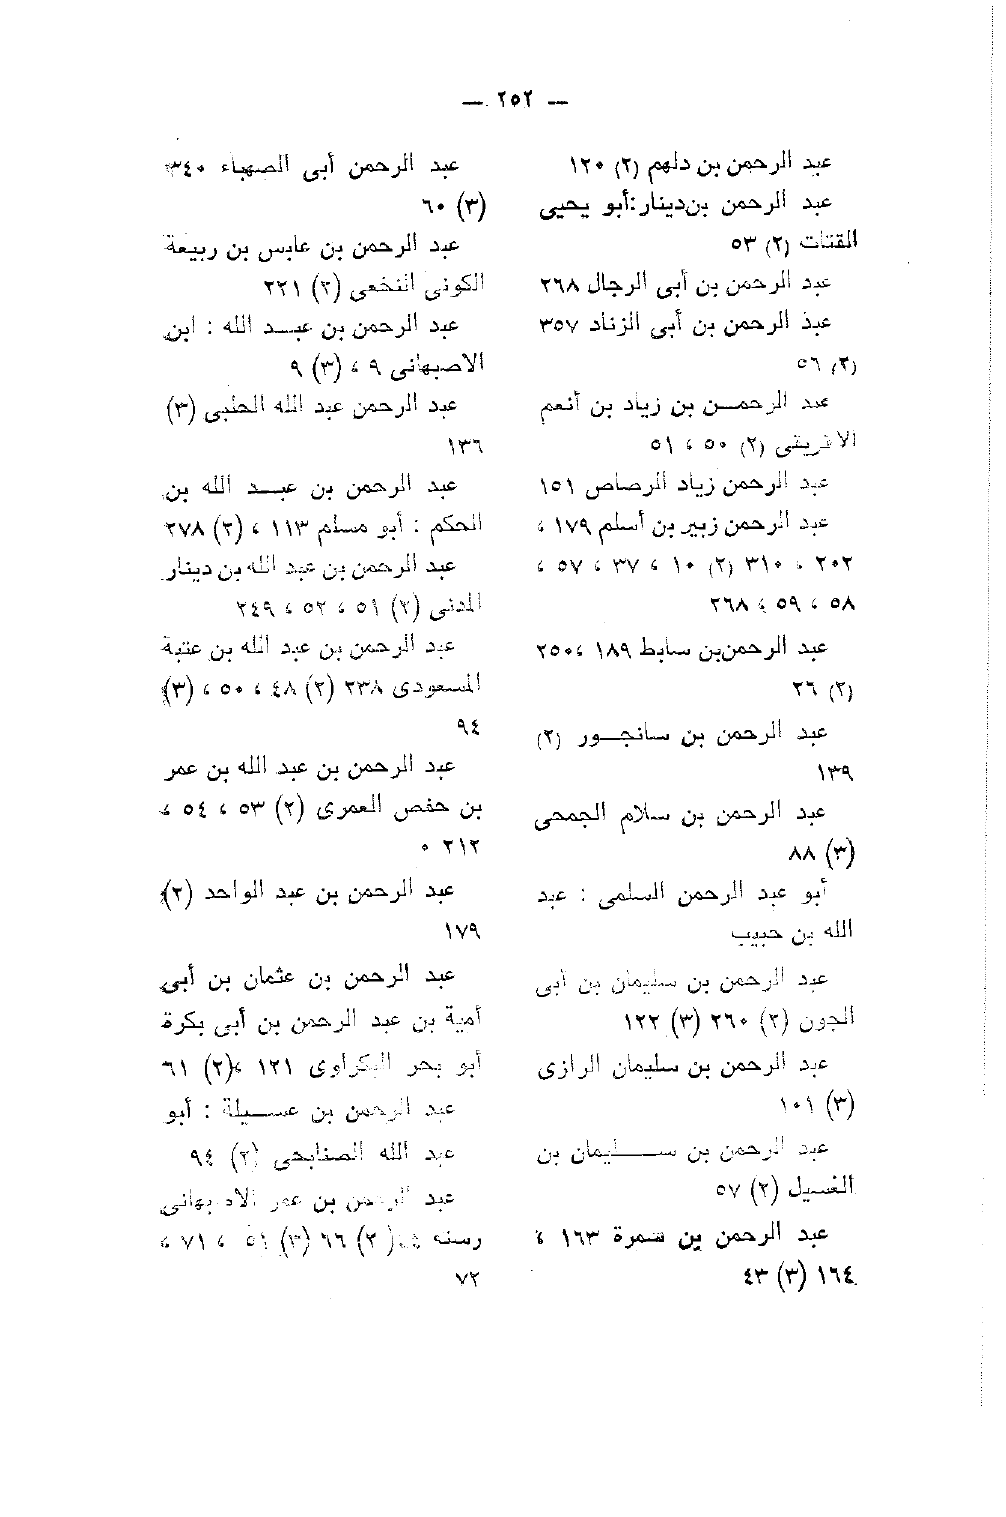 — ٢٥٢ —
عبد الرحمن بن دلهم (٢) ١٢٠
عبد الرحمن بن دينار : أبو يحيى
القتات (٢) ٥٣
عبد الرحمن بن أبى الرجال ٢٦٨
عبد الرحمن بن أبى الزناد ٣٥٧
(٢) ٥٦
عبد الرحمـن بن زياد بن أنعم
الافريقى (٢) ٥٠ ، ٥١
عبد الرحمن زياد الرصاص ١٥١
عبد الرحمن زبير بن أسلم ١٧٩ ،
٢٠٢ ، ٣١٠ (٢) ١٠ ، ٣٧ ، ٥٧ ،
٥٨ ، ٥٩ ، ٢٦٨
عبد الرحمن بن سابط ١٨٩ ، ٢٥٠
(٢) ٢٦
عبد الرحمن بن سانجـور (٢)
١٣٩
عبد الرحمن بن سلام الجمحى
(٣) ٨٨
أبو عبد الرحمن السلمى : عبد
الله بن حبيب
عبد الرحمن بن سليمان بن أبى
الجون (٢) ٢٦٠ (٣) ١٢٢
عبد الرحمن بن سليمان الرازى
(٣) ١٠١
عبد الرحمن بن سـليمان بن
الغسيل (٢) ٥٧
عبد الرحمن بن سمرة ١٦٣ ،
١٦٤ (٣) ٤٣
عبد الرحمن أبى الصهباء ٣٤٠
(٣) ٦٠
عبد الرحمن بن عابس بن ربيعة
الكونى النخعى (٢) ٢٢١
عبد الرحمن بن عبـد الله : ابن
الاصبهانى ٩ ، (٣) ٩
عبد الرحمن عبد الله الحلبى (٣)
١٣٦
عبد الرحمن بن عبـد الله بن
الحكم : أبو مسلم ١١٣ ، (٢) ٢٧٨
عبد الرحمن بن عبد الله بن دينار
المدنى (٢) ٥١ ، ٥٢ ، ٢٤٩
عبد الرحمن بن عبد الله بن عتبة
المسعودى ٢٣٨ (٢) ٤٨ ، ٥٠ ، (٣)
٩٤
عبد الرحمن بن عبد الله بن عمر
بن حفص العمرى (٢) ٥٣ ، ٥٤ ،
٢١٢ ٠
عبد الرحمن بن عبد الواحد (٢)
١٧٩
عبد الرحمن بن عثمان بن أبى
أمية بن عبد الرحمن بن أبى بكرة
أبو بحر البكراوى ١٢١ ،(٢) ٦١
عبد الرحمن بن عسـيلة : أبو
عبد الله الصنابحى (٢) ٩٤
عبد الرحمن بن عمر الاصبهانى
رسته (٢) ٦٦ (٣) ٥١ ، ٧١ ،
٧٢